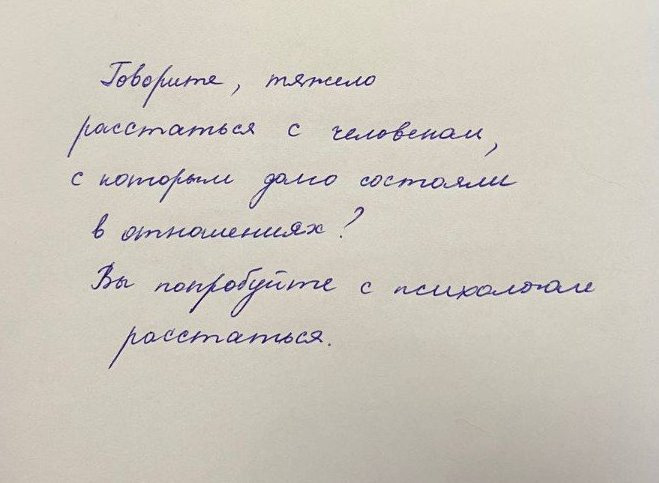 Говорите, тяжело
расстаться с человеком,
с которым долго состояли
в отношениях?
Вы попробуйте с психологом
расстаться.